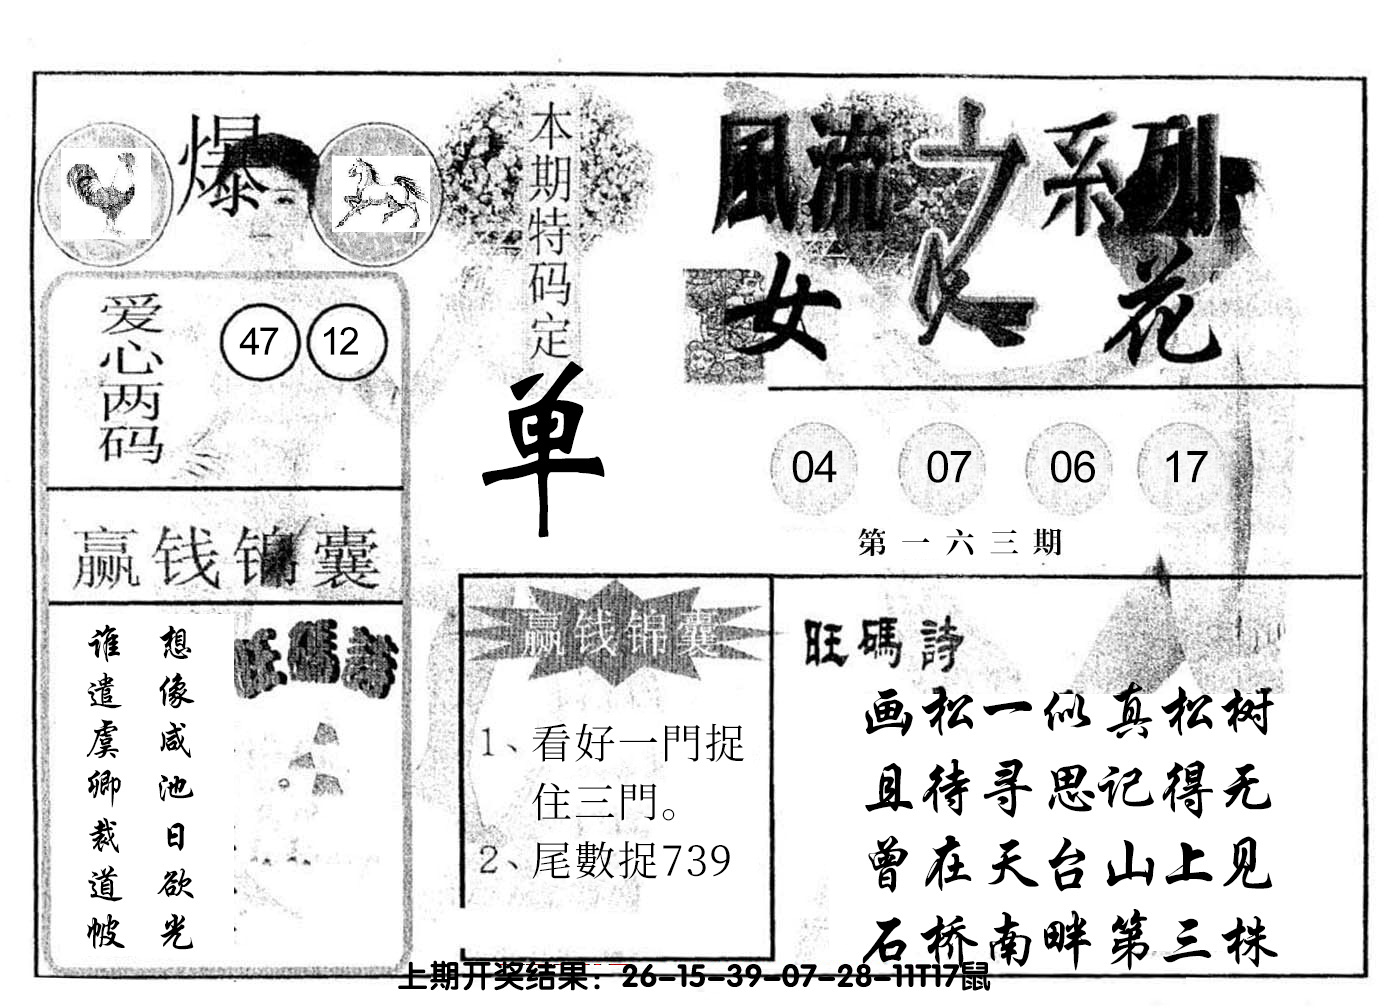 爆
本期特码定
单
風流之系列
女人花
爱心两码
47 12
04 07 06 17
第一六三期
赢钱锦囊
想像咸池日欲光
谁遣虞卿裁道帔
旺碼詩
赢钱锦囊
1、看好一門捉
住三門。
2、尾數捉739
旺碼詩
画松一似真松树
且待寻思记得无
曾在天台山上见
石桥南畔第三株
上期开奖结果：26-15-39-07-28-11T17鼠